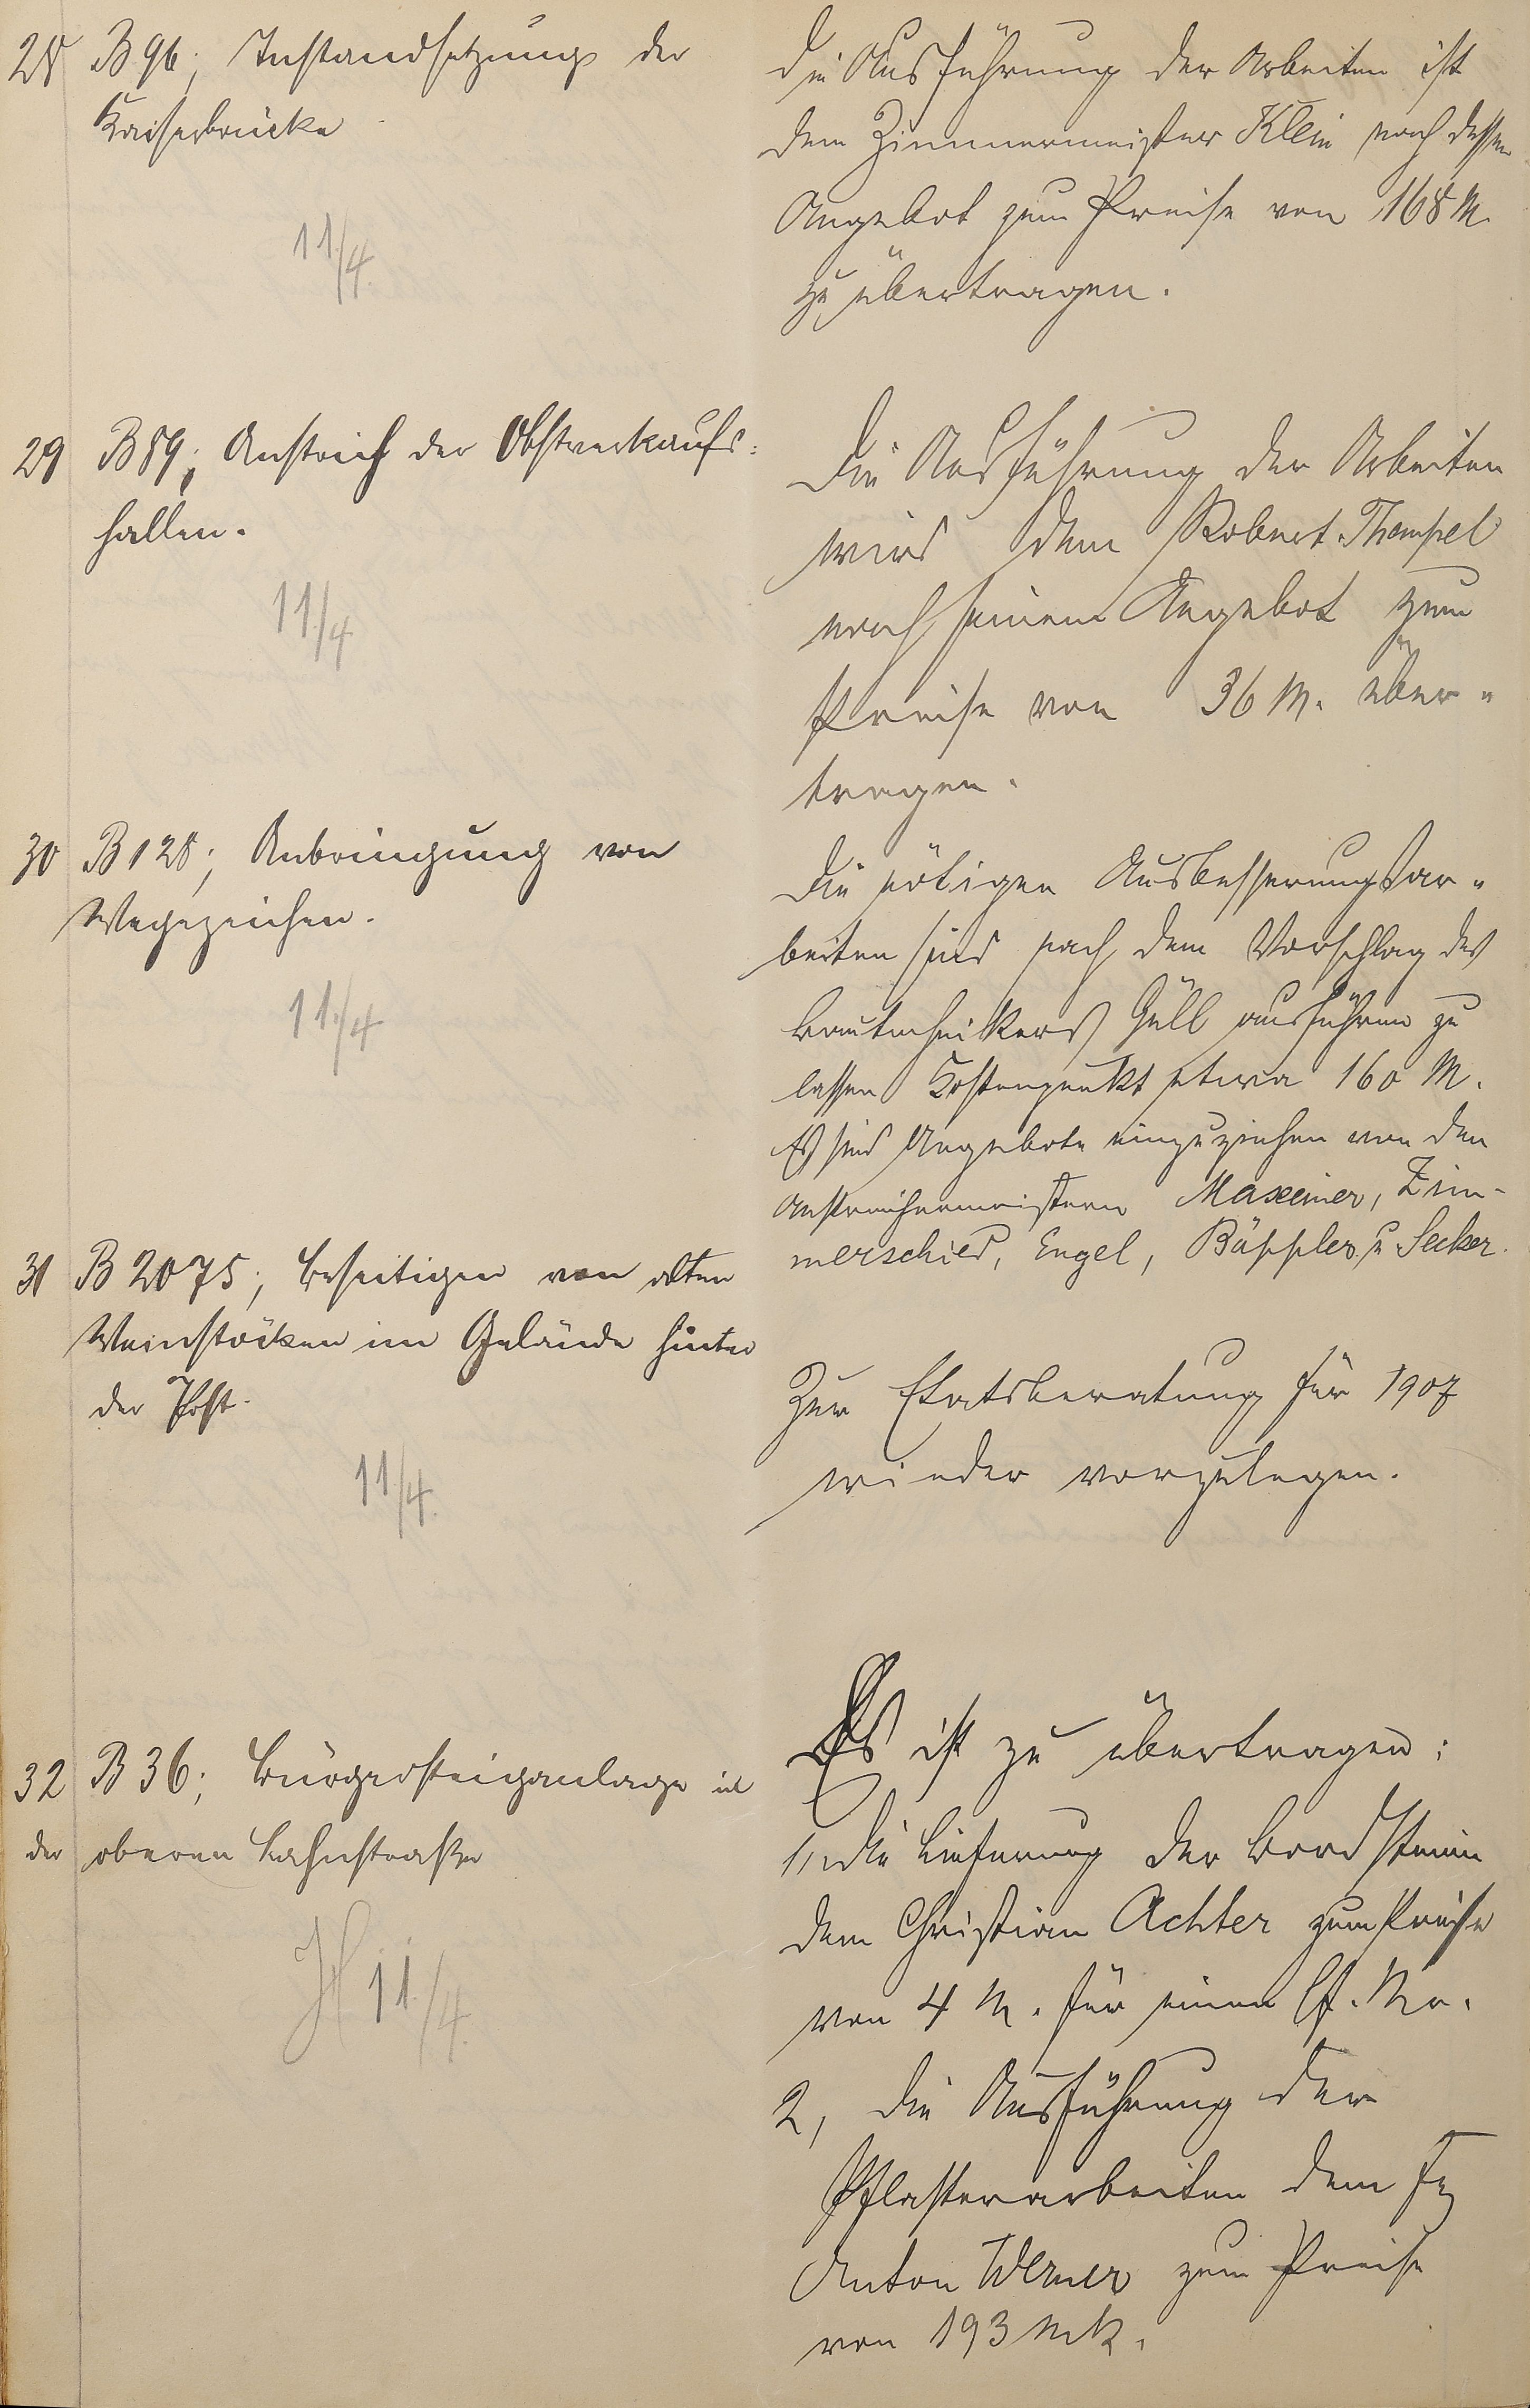 28 B 96; Instandsetzung der
Kaiserbrücke
11/4.
Die Ausführung der Arbeiten ist
dem Zimmermeister Klein nach dessen
Angebot zum Preise von 168 M.
zu übertragen.
29 B 89; Anstrich der Obstverkaufs-
hallen.
11./4
Die Ausführung der Arbeiten
wird dem Robert Thempel
nach seinem Angebot zum
Preise von 36 M. über-
tragen.
30 B 128; Anbringung von
Wegezeichen.
11./4
Die nötigen Ausbesserungsar-
beiten sind nach dem Vorschlag des
Bautechnikers Güll ausführen zu
lassen Kostenpunkt etwa 160 M.
Es sind Angebote einzuziehen von den
Anstreichermeistern Maxeiner, Zim-
merschied, Engel, Bäppler u Secker.
31 B 2075; Beseitigen von alten
Weinstöcken im Gelände hinter
der Post.
11/4.
Zur Etatsberatung für 1907
wieder vorzulegen.
32 B 36; Bürgersteiganlage in
der oberen Lahnstraße
11./4.
Es ist zu übertragen:
1, die Lieferung der Bordsteine
dem Christian Achter zum Preise
von 4 M. für einen lf. Mr.
2, die Ausführung der
Pflasterarbeiten dem
Anton Werner zum Preise
von 193 Mk.